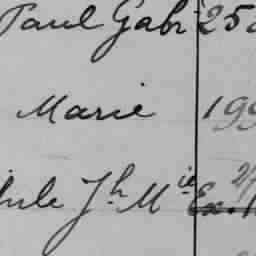 Paul Gabr 25
Marie 199
Jh Mie Ex.